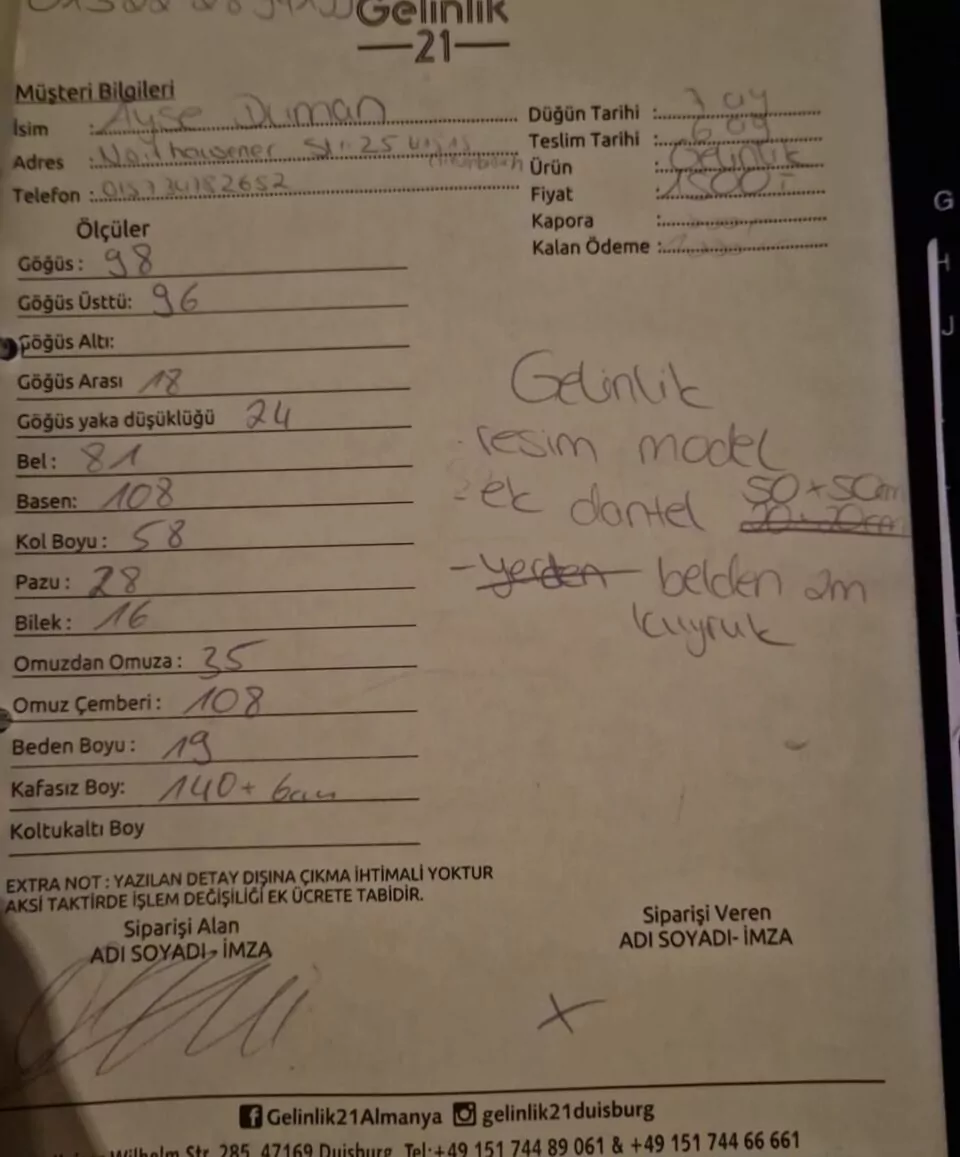 Gelinlik
21
Müşteri Bilgileri
İsim : Ayşe Duman
Adres : St. 25
Telefon :
Düğün Tarihi : 7 ay
Teslim Tarihi : 6 ay
Ürün : Gelinlik
Fiyat : 1500,-
Kapora :
Kalan Ödeme :
Ölçüler
Göğüs : 98
Göğüs Üsttü: 96
Göğüs Altı:
Göğüs Arası 18
Göğüs yaka düşüklüğü 24
Bel : 81
Basen: 108
Kol Boyu : 58
Pazu : 28
Bilek : 16
Omuzdan Omuza : 35
Omuz Çemberi : 108
Beden Boyu : 19
Kafasız Boy: 140 + 6cm
Koltukaltı Boy
Gelinlik
- resim model
- ek dantel 50 + 50cm
- yerden belden 2m
kuyruk
EXTRA NOT : YAZILAN DETAY DIŞINA ÇIKMA İHTİMALİ YOKTUR
AKSİ TAKTİRDE İŞLEM DEĞİŞİLİĞİ EK ÜCRETE TABİDİR.
Siparişi Alan
ADI SOYADI- İMZA
Siparişi Veren
ADI SOYADI- İMZA
X
Gelinlik21Almanya gelinlik21duisburg
Wilhelm Str. 285, 47169 Duisburg Tel:+49 151 744 89 061 & +49 151 744 66 661
G
H
J